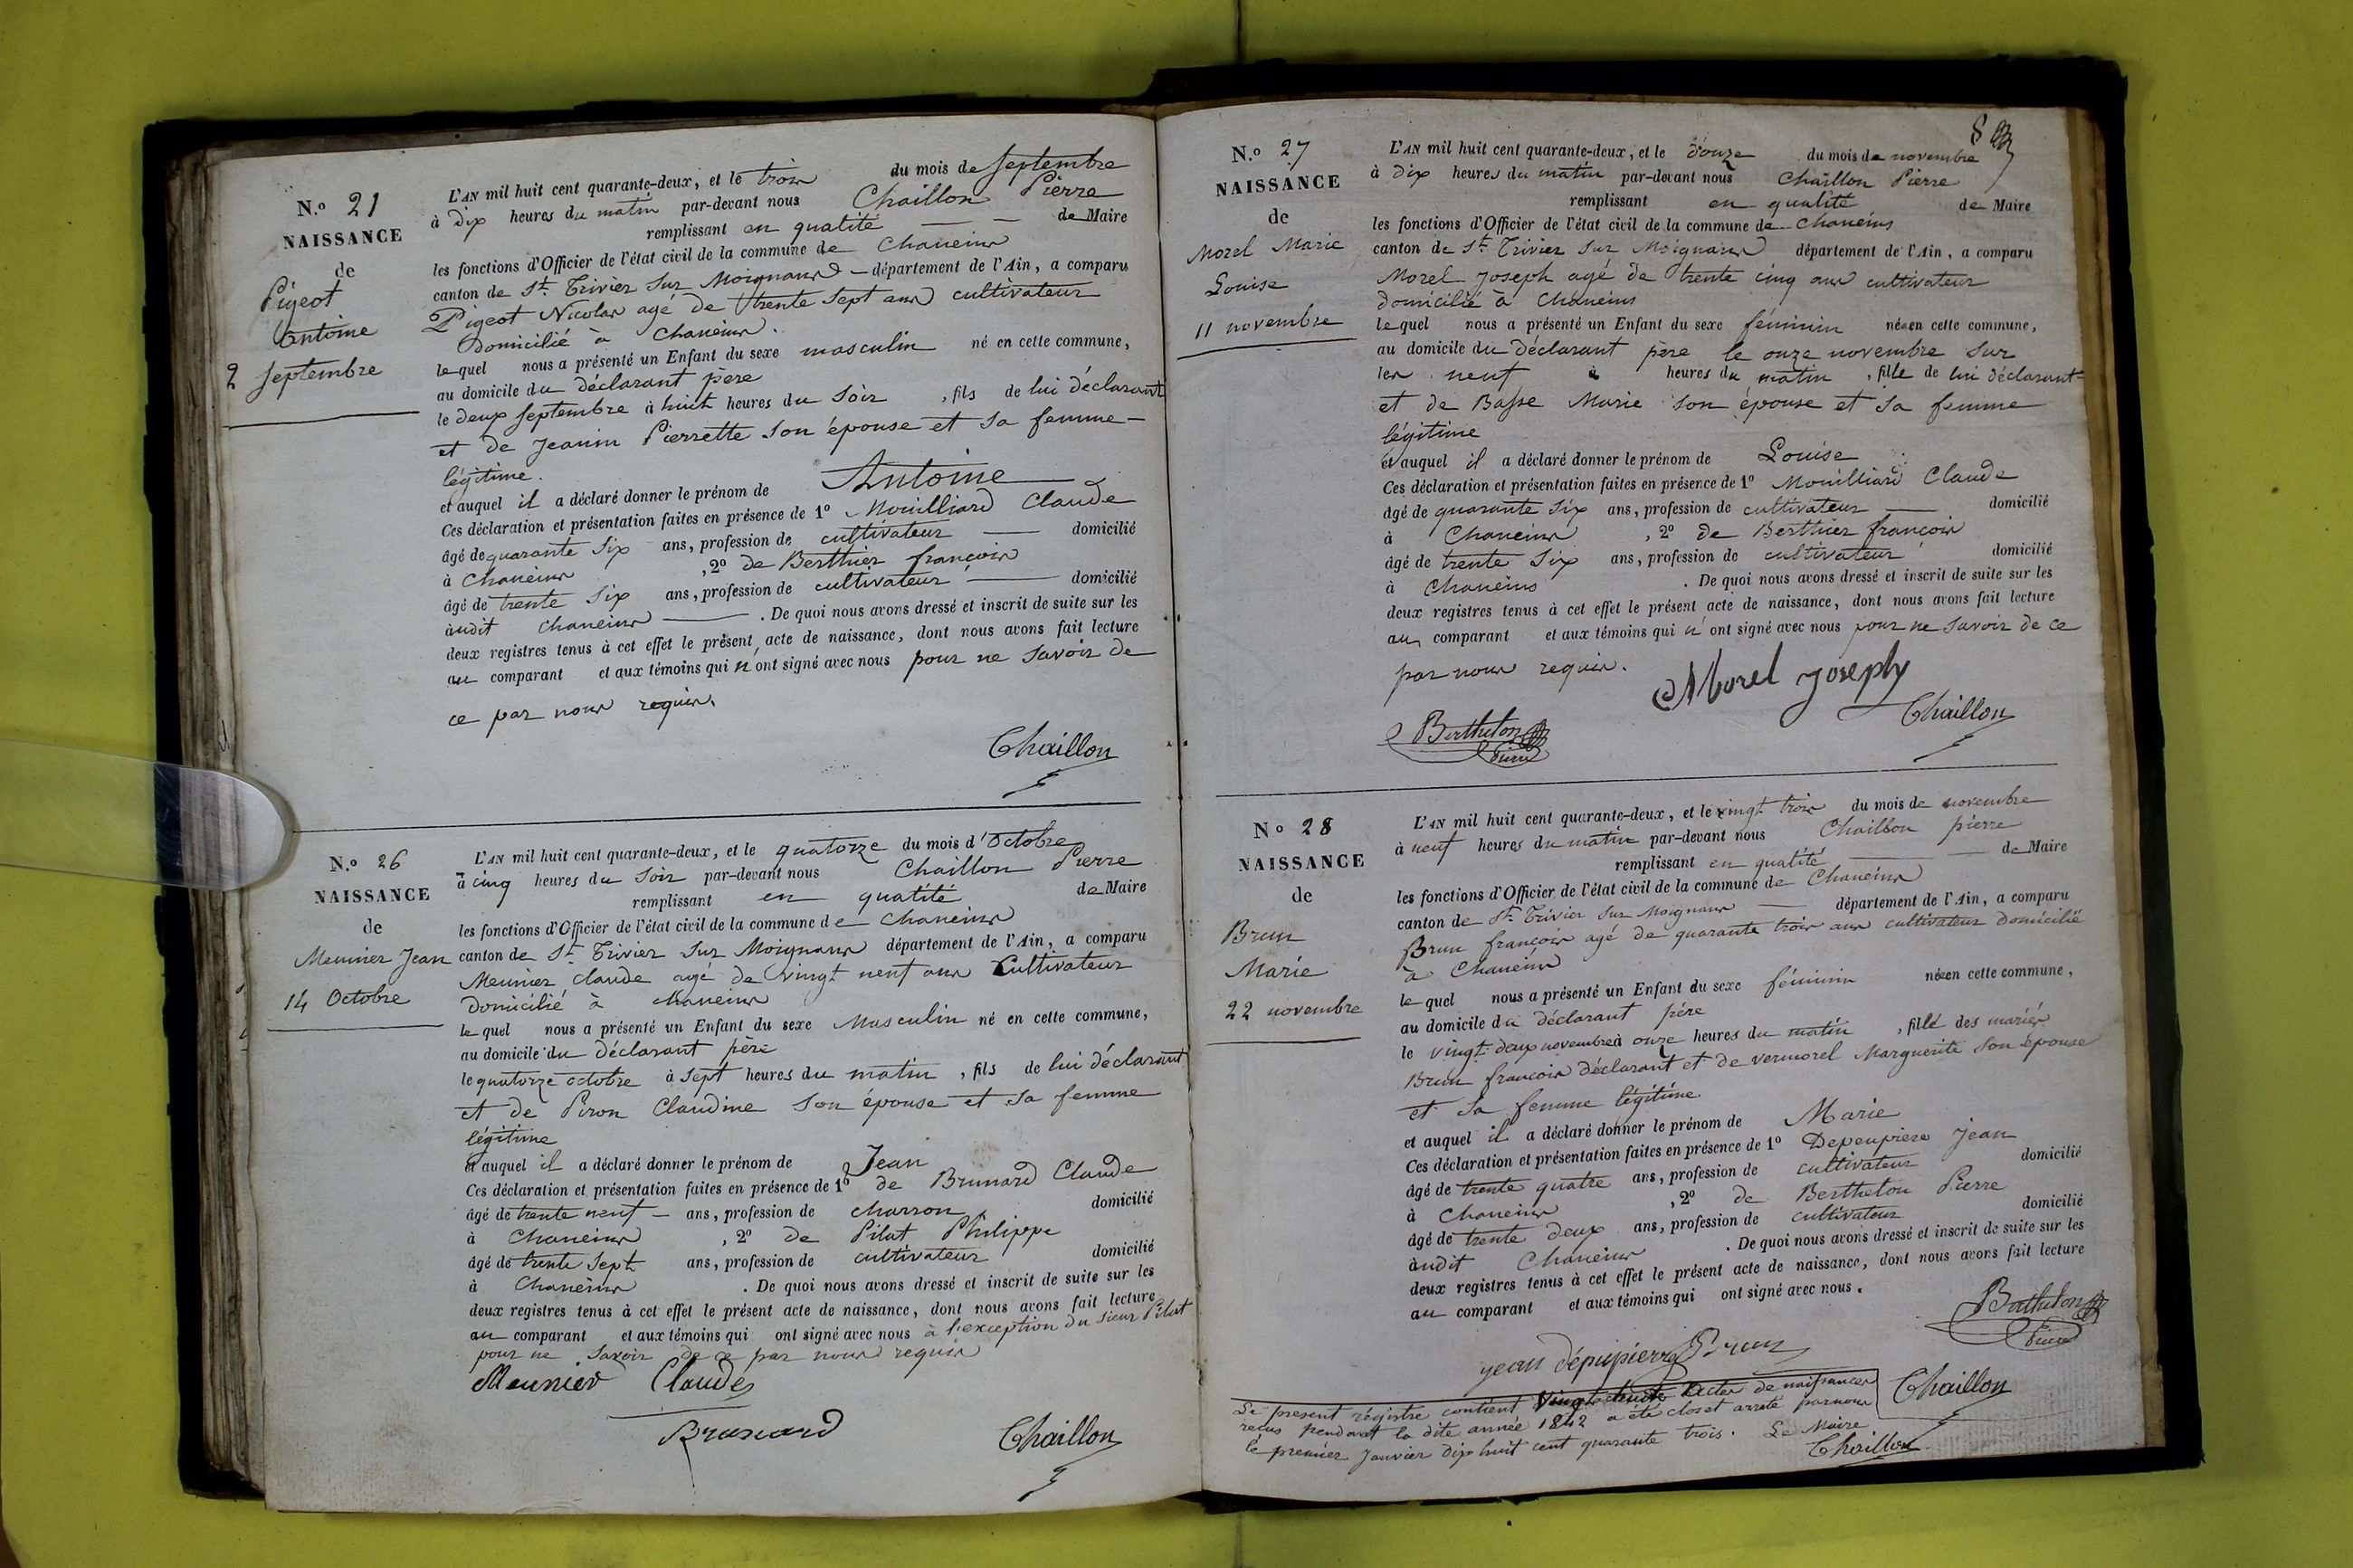 N.o 21
NAISSANCE
de
Pigeot
Antoine
2 septembre
L'AN mil huit cent quarante-deux, et le trois du mois de septembre
à dix heures du matin par-devant nous Chaillon Pierre
remplissant en qualité de Maire
les fonctions d'Officier de l'état civil de la commune de Chaneins
canton de St. Trivier sur Moignans département de l'Ain, a comparu
Pigeot Nicolas agé de trente sept ans cultivateur
domicilié à Chaneins.
lequel nous a présenté un Enfant du sexe masculin né en cette commune,
au domicile du déclarant père
le deux septembre à huit heures du soir, fils de lui déclarant
et de Jeanin Pierrette son épouse et sa femme
légitime.
et auquel il a déclaré donner le prénom de Antoine
Ces déclaration et présentation faites en présence de 1o Mouilliard Claude
âgé de quarante six ans, profession de cultivateur domicilié
à Chaneins, 2o de Berthier françois
âgé de trente six ans, profession de cultivateur domicilié
àudit Chaneins. De quoi nous avons dressé et inscrit de suite sur les
deux registres tenus à cet effet le présent acte de naissance, dont nous avons fait lecture
au comparant et aux témoins qui n'ont signé avec nous pour ne savoir de
ce par nous requis.
Chaillon
N.o 26
NAISSANCE
de
Meunier Jean
14 Octobre
L'AN mil huit cent quarante-deux, et le quatorze du mois d'Octobre
à cinq heures du soir par-devant nous Chaillon Pierre
remplissant en qualité de Maire
les fonctions d'Officier de l'état civil de la commune de Chaneins
canton de St. Trivier sur Moignans département de l'Ain, a comparu
Meunier Claude agé de vingt neuf ans Cultivateur
Domicilié à Chaneins
lequel nous a présenté un Enfant du sexe Masculin né en cette commune,
au domicile du déclarant père
le quatorze octobre à sept heures du matin, fils de lui déclarant
et de Piron Claudine son épouse et sa femme
légitime
et auquel il a déclaré donner le prénom de Jean
Ces déclaration et présentation faites en présence de 1o de Brunard Claude
âgé de trente neuf ans, profession de charron domicilié
à Chaneins, 2o de Pilat Philippe
âgé de trente sept ans, profession de cultivateur domicilié
à Chaneins. De quoi nous avons dressé et inscrit de suite sur les
deux registres tenus à cet effet le présent acte de naissance, dont nous avons fait lecture
au comparant et aux témoins qui ont signé avec nous à l'exception du sieur Pilat
pour ne savoir de ce par nous requis
Meunier Claude
Brunard
Chaillon
8
N.o 27
NAISSANCE
de
Morel Marie
Louise
11 novembre
L'AN mil huit cent quarante-deux, et le douze du mois de novembre
à dix heures du matin par-devant nous Chaillon Pierre
remplissant en qualité de Maire
les fonctions d'Officier de l'état civil de la commune de Chaneins
canton de St. Trivier sur Moignans département de l'Ain, a comparu
Morel Joseph agé de trente cinq ans cultivateur
domicilié à Chaneins
lequel nous a présenté un Enfant du sexe féminin née en cette commune,
au domicile du déclarant père le onze novembre sur
les neuf heures du matin, fille de lui déclarant
et de Basse Marie son épouse et sa femme
légitime
et auquel il a déclaré donner le prénom de Louise
Ces déclaration et présentation faites en présence de 1o Mouilliard Claude
âgé de quarante six ans, profession de cultivateur domicilié
à Chaneins, 2o de Berthier françois
âgé de trente six ans, profession de cultivateur domicilié
à Chaneins. De quoi nous avons dressé et inscrit de suite sur les
deux registres tenus à cet effet le présent acte de naissance, dont nous avons fait lecture
au comparant et aux témoins qui n'ont signé avec nous pour ne savoir de ce
par nous requis.
Morel Joseph
Chaillon
Berthelon
Pierre
No 28
NAISSANCE
de
Brun
Marie
22 novembre
L'AN mil huit cent quarante-deux, et le vingt trois du mois de novembre
à neuf heures du matin par-devant nous Chaillon pierre
remplissant en qualité de Maire
les fonctions d'Officier de l'état civil de la commune de Chaneins
canton de St. Trivier sur Moignans département de l'Ain, a comparu
Brun françois agé de quarante trois ans cultivateur domicilié
à Chaneins
lequel nous a présenté un Enfant du sexe féminin née en cette commune,
au domicile du déclarant père
le vingt deux novembre à onze heures du matin, fille des mariés
Brun françois déclarant et de vermorel Marguerite son épouse
et sa femme légitime
et auquel il a déclaré donner le prénom de Marie
Ces déclaration et présentation faites en présence de 1o Depeupiere Jean
âgé de trente quatre ans, profession de cultivateur domicilié
à Chaneins, 2o de Berthelon Pierre
âgé de trente deux ans, profession de cultivateur domicilié
àudit Chaneins. De quoi nous avons dressé et inscrit de suite sur les
deux registres tenus à cet effet le présent acte de naissance, dont nous avons fait lecture
au comparant et aux témoins qui ont signé avec nous.
Berthelon
Pierre
jean dépupierre Brun
Chaillon
Le présent régistre contient Vingt huit Actes de naissances
reçus pendant la dite année 1842 a été clos et arrêté par nous
le premier Janvier dix huit cent quarante trois. Le Maire
Chaillon